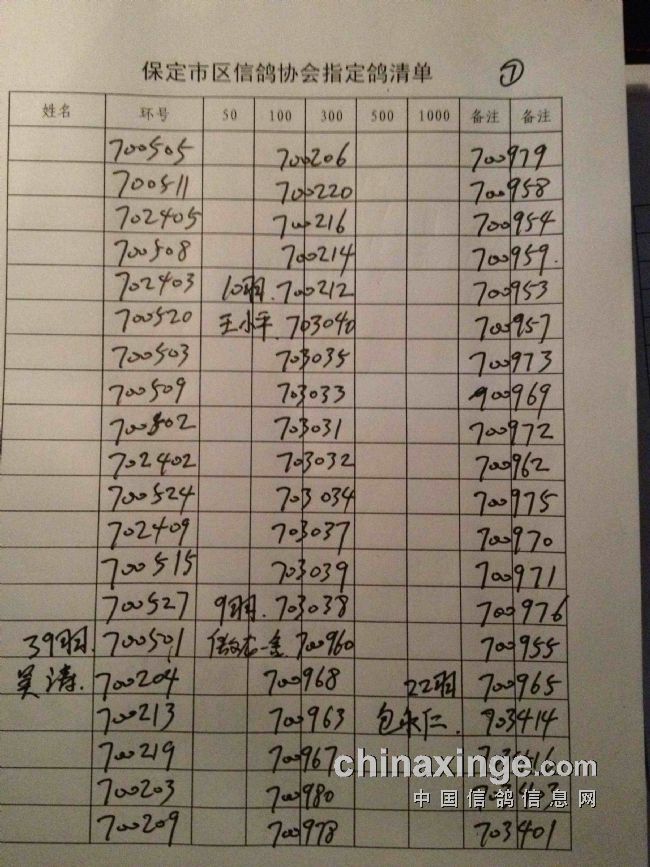 保定市区信鸽协会指定鸽清单 ①
姓名 环号 50 100 300 500 1000 备注 备注
700505 700206 700979
700511 700220 700958
702405 700216 700954
700508 700214 700959.
702403 10羽. 700212 700953
700520 王小平. 703040 700957
700503 703035 700973
700509 703033 900969
700502 703031 700972
702402 703032 700962
700524 703034 700975
702409 703037 700970
700515 703039 700971
700527 9羽. 703038 700976
39羽. 700501 700960 700955
吴涛. 700204 700968 22羽 700965
700213 700963 包永仁. 903414
700219 700967
700203 700980
700209 700978 703401
chinaxinge.com
中国信鸽信息网